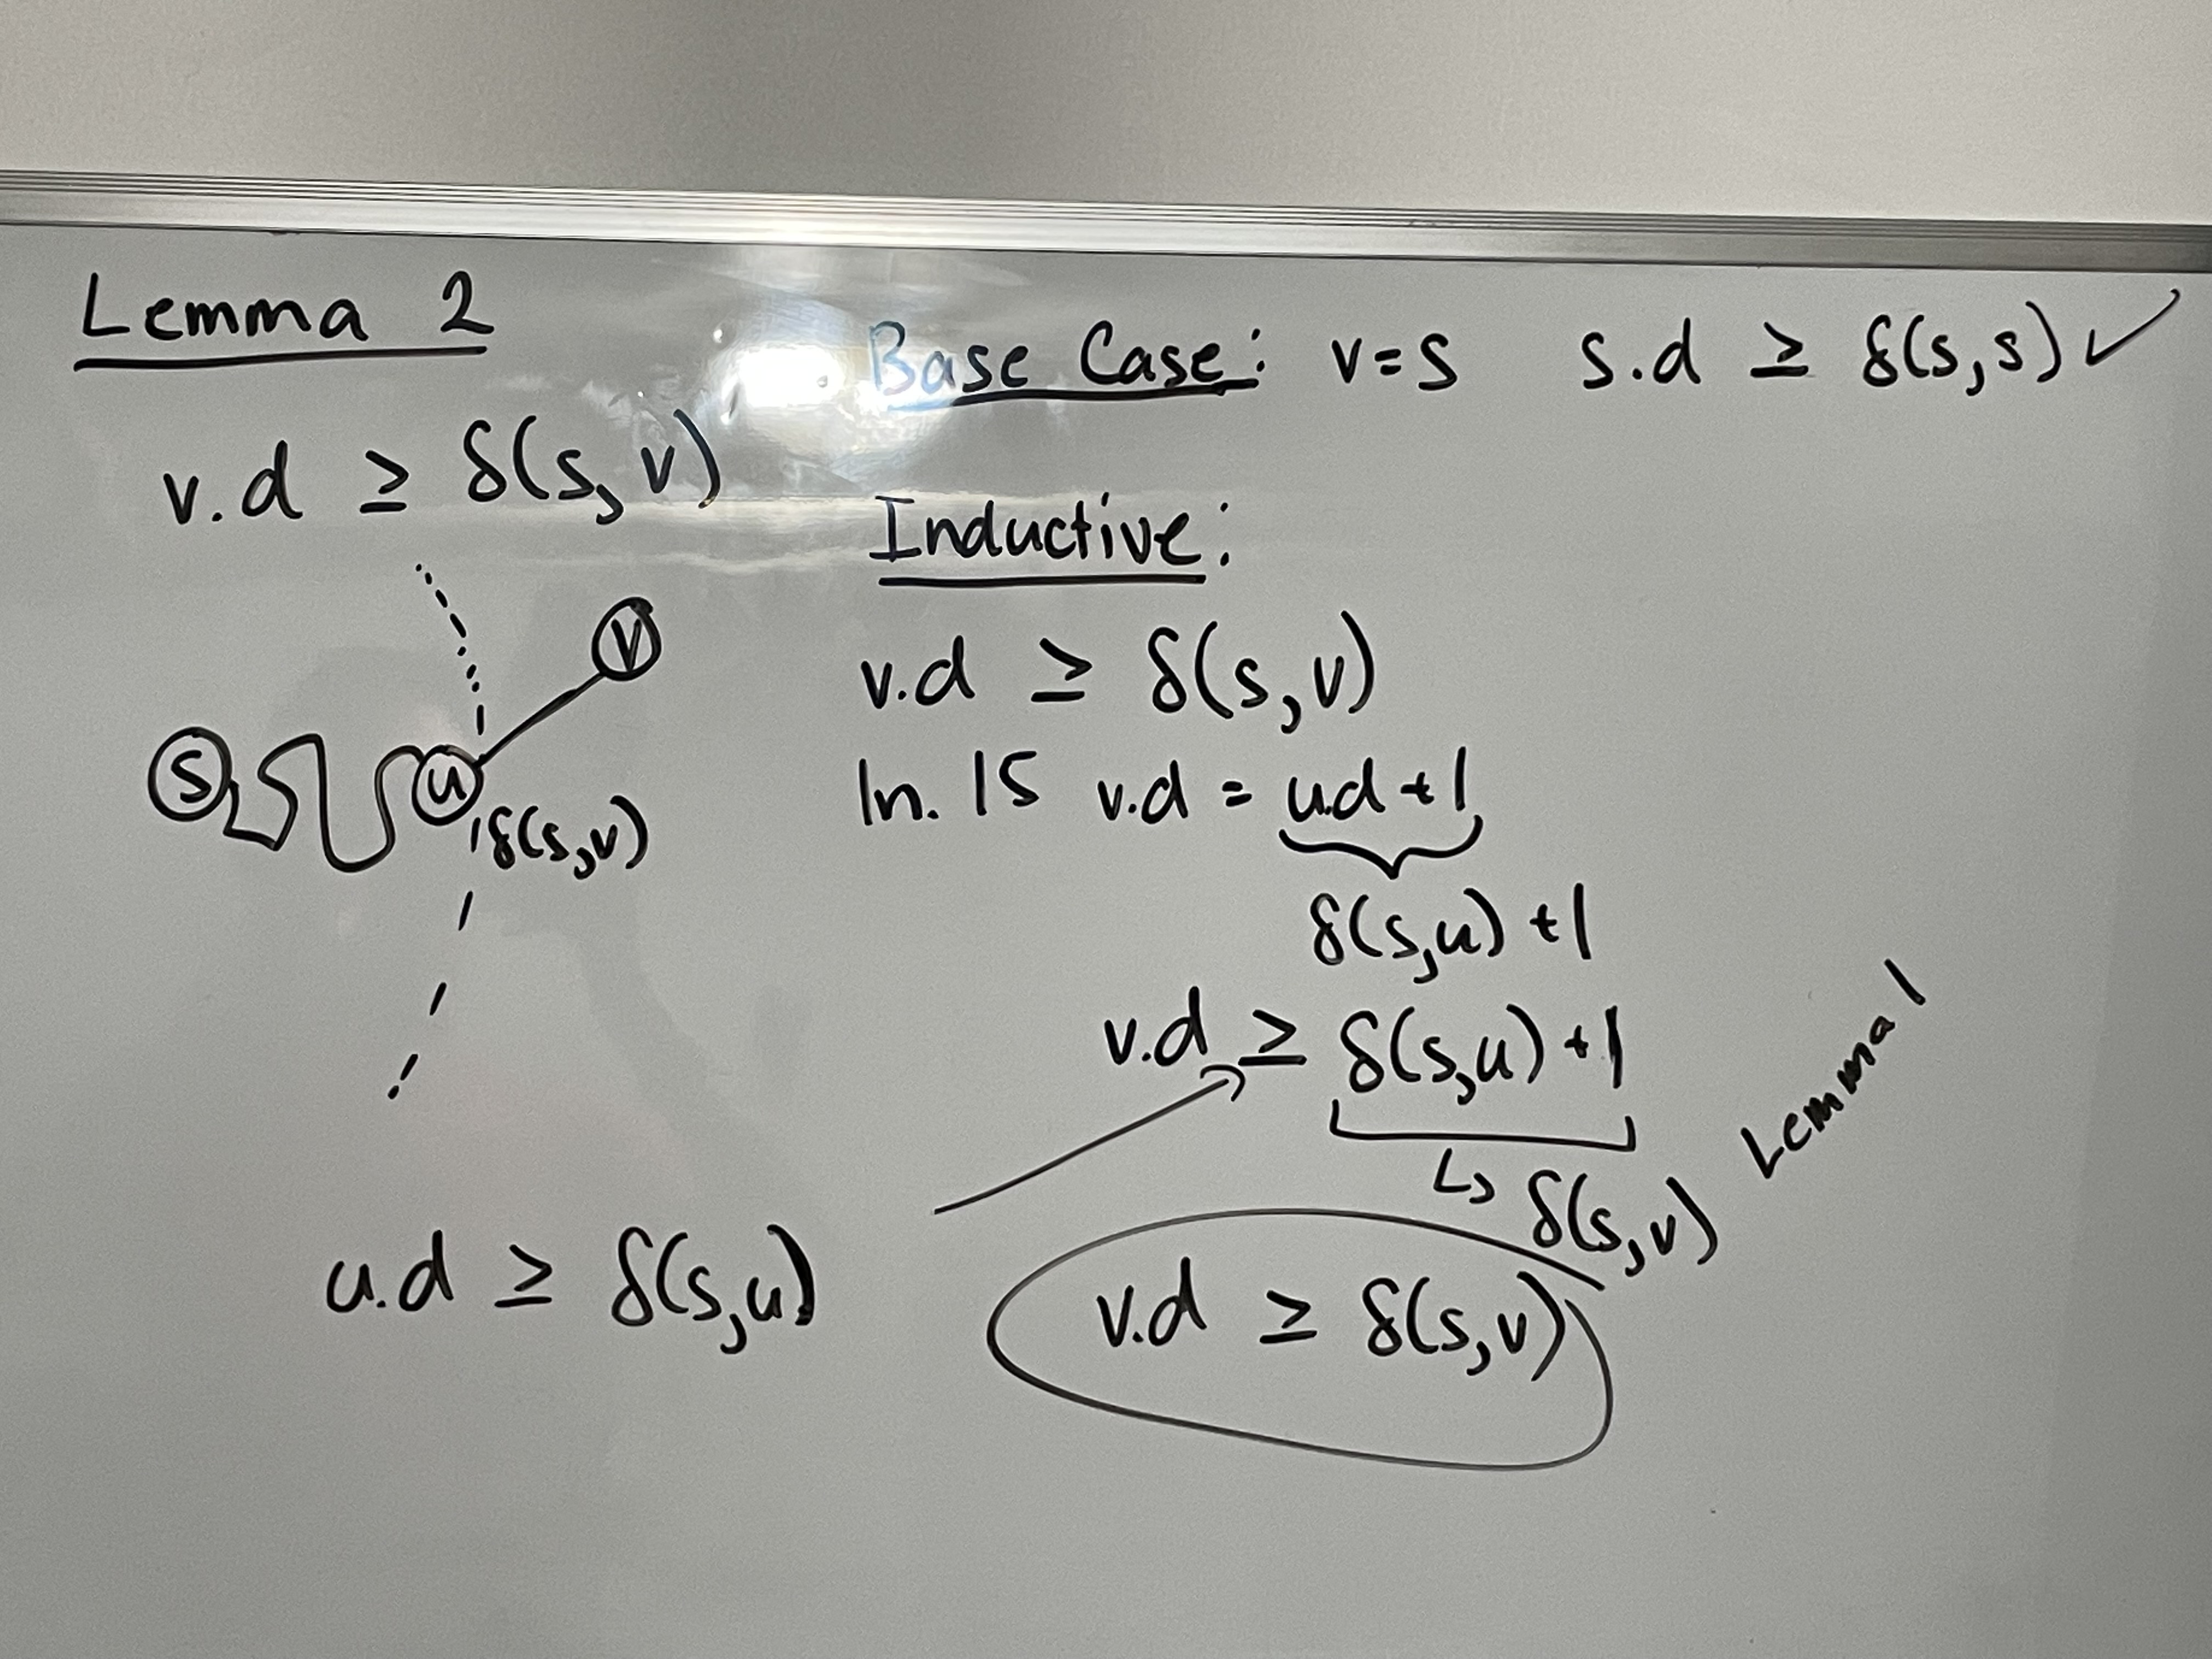 Lemma 2
v.d ≥ δ(s,v)
S
u
v
δ(s,v)
u.d ≥ δ(s,u)
Base Case: v=s s.d ≥ δ(s,s) ✓
Inductive:
v.d ≥ δ(s,v)
ln. 15 v.d = u.d +1
δ(s,u) +1
v.d ≥ δ(s,u) +1
↳ δ(s,v) Lemma 1
v.d ≥ δ(s,v)